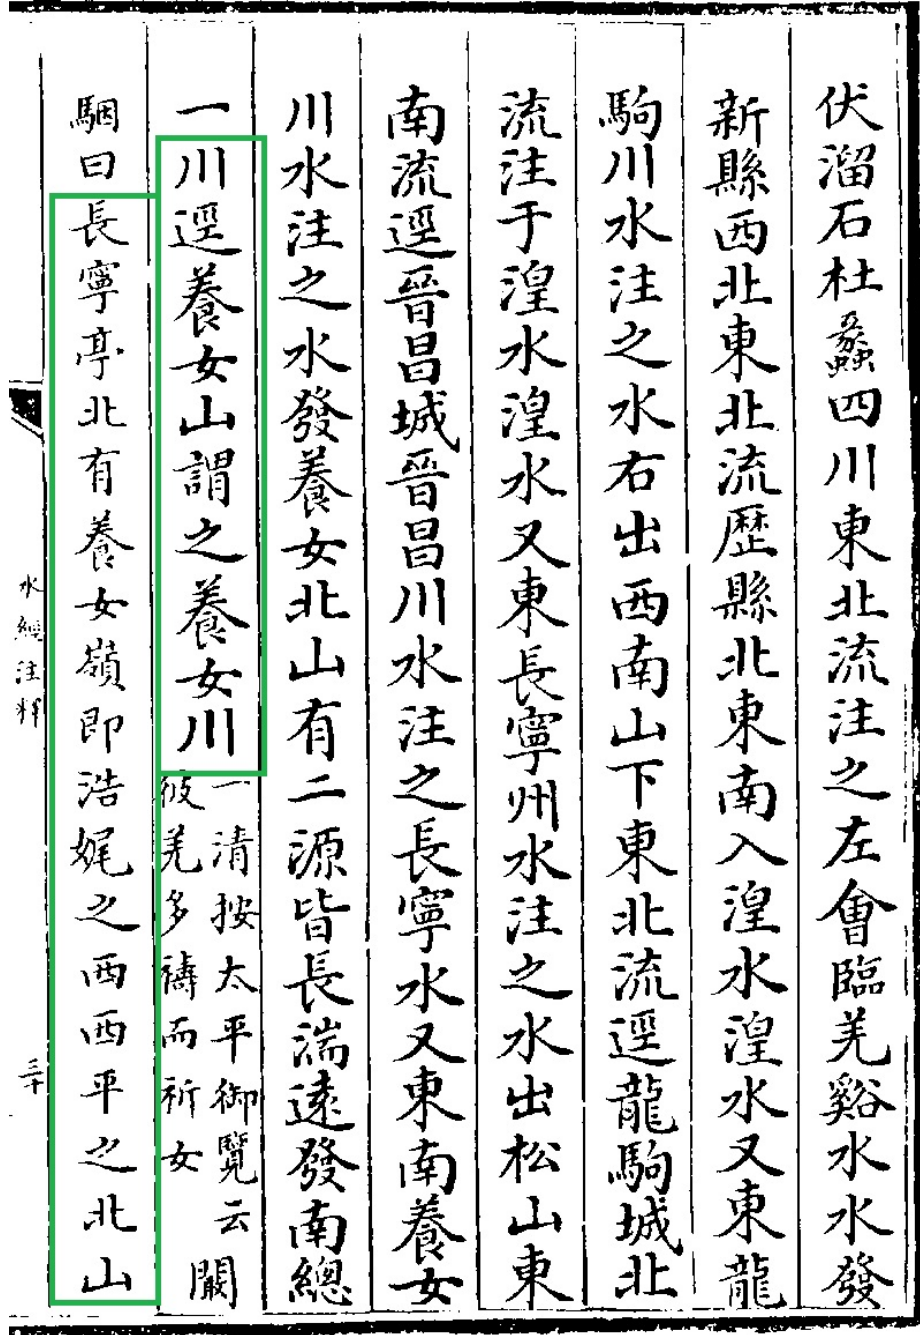 伏溜石杜蠡四川東北流注之左會臨羌谿水水發
新縣西北東北流歷縣北東南入湟水湟水又東龍
駒川水注之水右出西南山下東北流逕龍駒城北
流注于湟水湟水又東長寧州水注之水出松山東
南流逕晉昌城晉昌川水注之長寧水又東南養女
川水注之水發養女北山有二源皆長湍遠發南總
一川逕養女山謂之養女川
一清按太平御覽云
彼羌多禱而祈女
闞
駰曰長寧亭北有養女嶺即浩娓之西西平之北山
水經注釋
三十